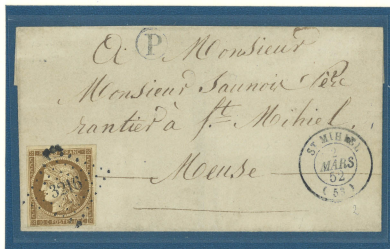 A Monsieur
P
Monsieur Saunois Père
rantier à St. Mihiel
Meuse
ST MIHIEL
MARS
52
(55)